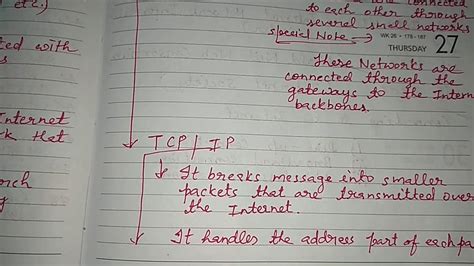 etc.)
are connected
to each other through
several small networks
Special Note →
WK 26 • 178 - 187
THURSDAY 27
ted with
s
These Networks are
connected through the
gateways to the Intern
backbones.
Internet
k that
TCP | IP
It breaks message into smaller
packets that are transmitted over
the Internet.
It handles the address part of each pa